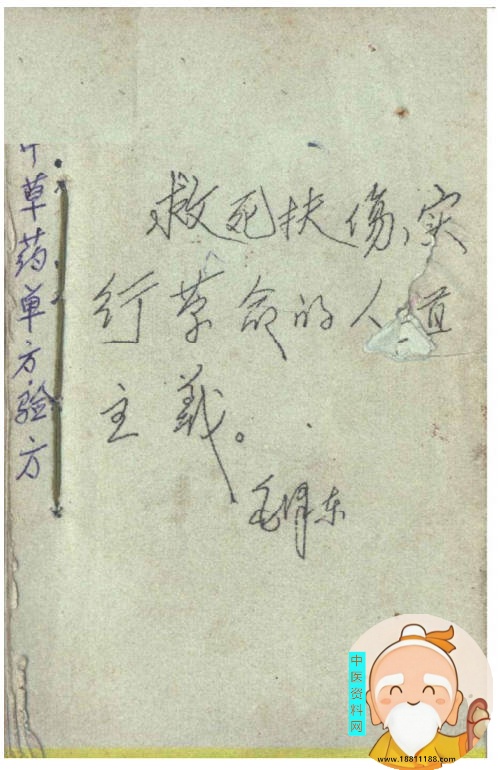 草药单方验方
救死扶傷,实
行革命的人道
主義。
毛泽东
中医资料网
www.18811188.com